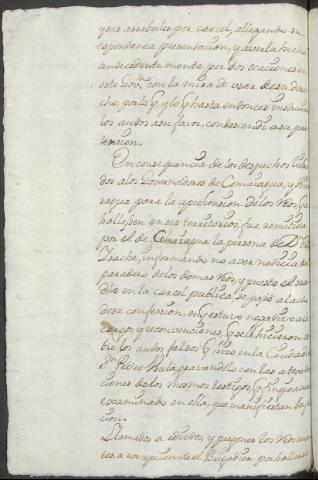 y sus arrabales por carcel, allegando su
espontanea presentacion, y averla hecho
antecedentemente por dos ocaciones en
este Govno. con la mira de usar de su dere
cho, por lo q. y lo q. hasta entonces instruian
los autos a su favor, condescendi a su pre
tencion.
En consequencia de los despachos libra
dos a los Governadores de Comaiagua, y Nica
ragua para la aprehencion de los Reos q.
hallassen en sus territorios, fue remitida
por el de Comaiagua la persona de Dn.
Zracha, informando no aver noticia del
paradero de los demas Reos, y puesto el
dho en la carcel publica se pasó al acto
de su confession, en q. estuvo negativo a los
cargos, y reconvenciones, q. se le hicieron so
bre los autos falsos q. hizo en la Ciudad de
Sn. Pedro Sula, gravandolo con las
ciones de los mismos testigos q. fingio aver
examinado en ella, que manifiestan la
cion.
Llamados a edictos, y pregones los Reos
tes, a excepcion de el Brigadier por hallarse